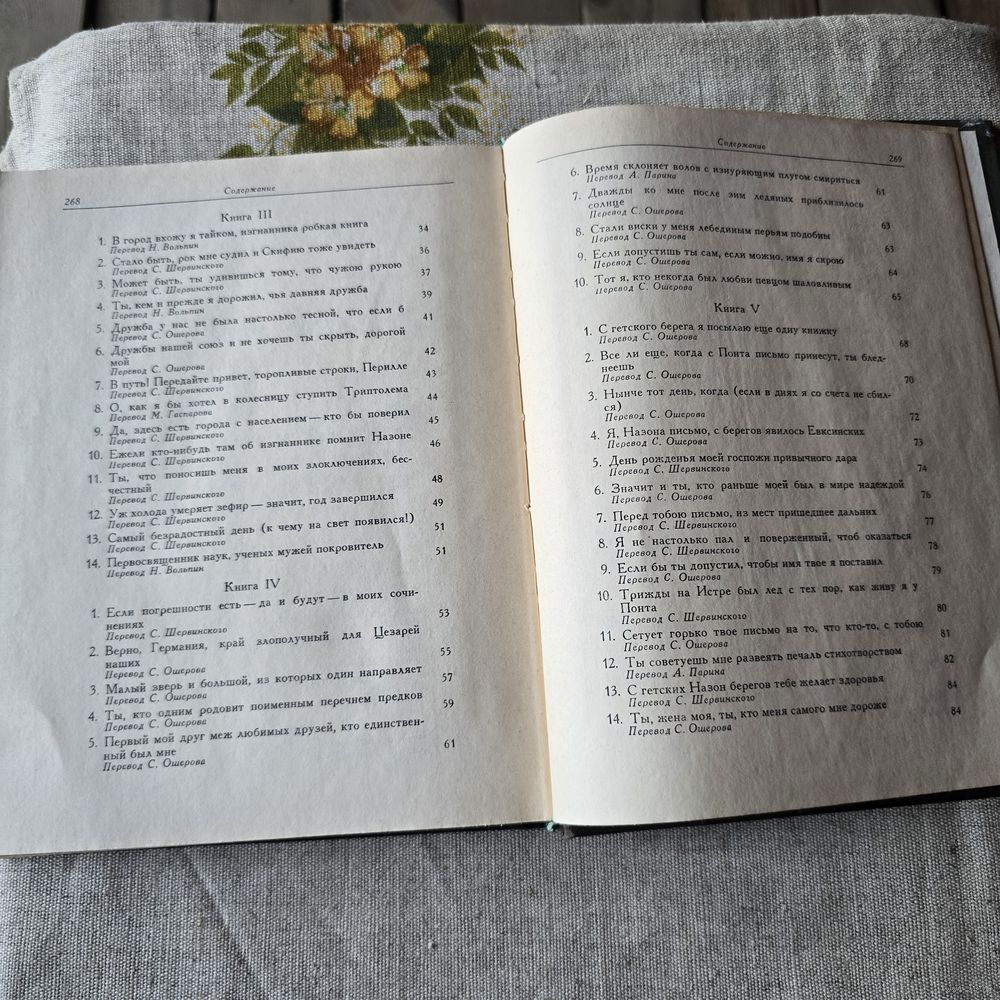 268
Содержание
Книга III
1. В город вхожу я тайком, изгнанника робкая книга 34
Перевод Н. Вольпин
2. Стало быть, рок мне судил и Скифию тоже увидеть 36
Перевод С. Шервинского
3. Может быть, ты удивишься тому, что чужою рукою 37
Перевод С. Шервинского
4. Ты, кем я прежде я дорожил, чья давняя дружба 39
Перевод Н. Вольпин
5. Дружба у нас не была настолько тесной, что если б 41
Перевод С. Ошерова
6. Дружбы нашей союз и не хочешь ты скрыть, дорогой
мой 42
Перевод С. Ошерова
7. В путь! Передайте привет, торопливые строки, Перилле 43
Перевод С. Шервинского
8. О, как я бы хотел в колесницу ступить Триптолема 44
Перевод М. Гаспарова
9. Да, здесь есть города с населением — кто бы поверил 45
Перевод С. Шервинского
10. Ежели кто-нибудь там об изгнаннике помнит Назоне 46
Перевод С. Шервинского
11. Ты, что поносишь меня в моих злоключениях, бес-
честный 48
Перевод С. Шервинского
12. Уж холода умеряет зефир — значит, год завершился 49
Перевод С. Шервинского
13. Самый безрадостный день (к чему на свет появился!) 51
Перевод С. Шервинского
14. Первосвященник наук, ученых мужей покровитель 51
Перевод Н. Вольпин
Книга IV
1. Если погрешности есть — да и будут — в моих сочи-
нениях 53
Перевод С. Шервинского
2. Верно, Германия, край злополучный для Цезарей
наших 55
Перевод С. Ошерова
3. Малый зверь и большой, из которых один направляет 57
Перевод С. Ошерова
4. Ты, кто одним родовит поименным перечнем предков 59
Перевод С. Ошерова
5. Первый мой друг меж любимых друзей, кто единствен-
ный был мне 61
Перевод С. Ошерова
Содержание
269
6. Время склоняет волов с изнуряющим плугом смириться 61
Перевод А. Парина
7. Дважды ко мне после зим ледяных приблизилось
солнце 63
Перевод С. Ошерова
8. Стали виски у меня лебединым перьям подобны 63
Перевод С. Ошерова
9. Если допустишь ты сам, если можно, имя я скрою 64
Перевод С. Ошерова
10. Тот я, кто некогда был любви певцом шаловливым 65
Перевод С. Ошерова
Книга V
1. С гетского берега я посылаю еще одну книжку 68
Перевод С. Ошерова
2. Все ли еще, когда с Понта письмо принесут, ты блед-
неешь 70
Перевод С. Ошерова
3. Нынче тот день, когда (если в днях я со счета не сбил-
ся) 72
Перевод С. Ошерова
4. Я, Назона письмо, с берегов явилось Евксинских 73
Перевод С. Ошерова
5. День рожденья моей госпожи привычного дара 74
Перевод С. Шервинского
6. Значит и ты, кто раньше моей был в мире надеждой 76
Перевод С. Ошерова
7. Перед тобою письмо, из мест пришедшее дальних 77
Перевод С. Шервинского
8. Я не настолько пал и поверженный, чтоб оказаться 78
Перевод С. Шервинского
9. Если бы ты допустил, чтобы имя твое я поставил 79
Перевод С. Ошерова
10. Трижды на Истре был лед с тех пор, как живу я у
Понта 80
Перевод С. Шервинского
11. Сетует горько твое письмо на то, что кто-то, с тобою 81
Перевод С. Ошерова
12. Ты советуешь мне развеять печаль стихотворством 82
Перевод А. Парина
13. С гетских Назон берегов тебе желает здоровья 84
Перевод С. Шервинского
14. Ты, жена моя, ты, кто меня самого мне дороже 84
Перевод С. Ошерова